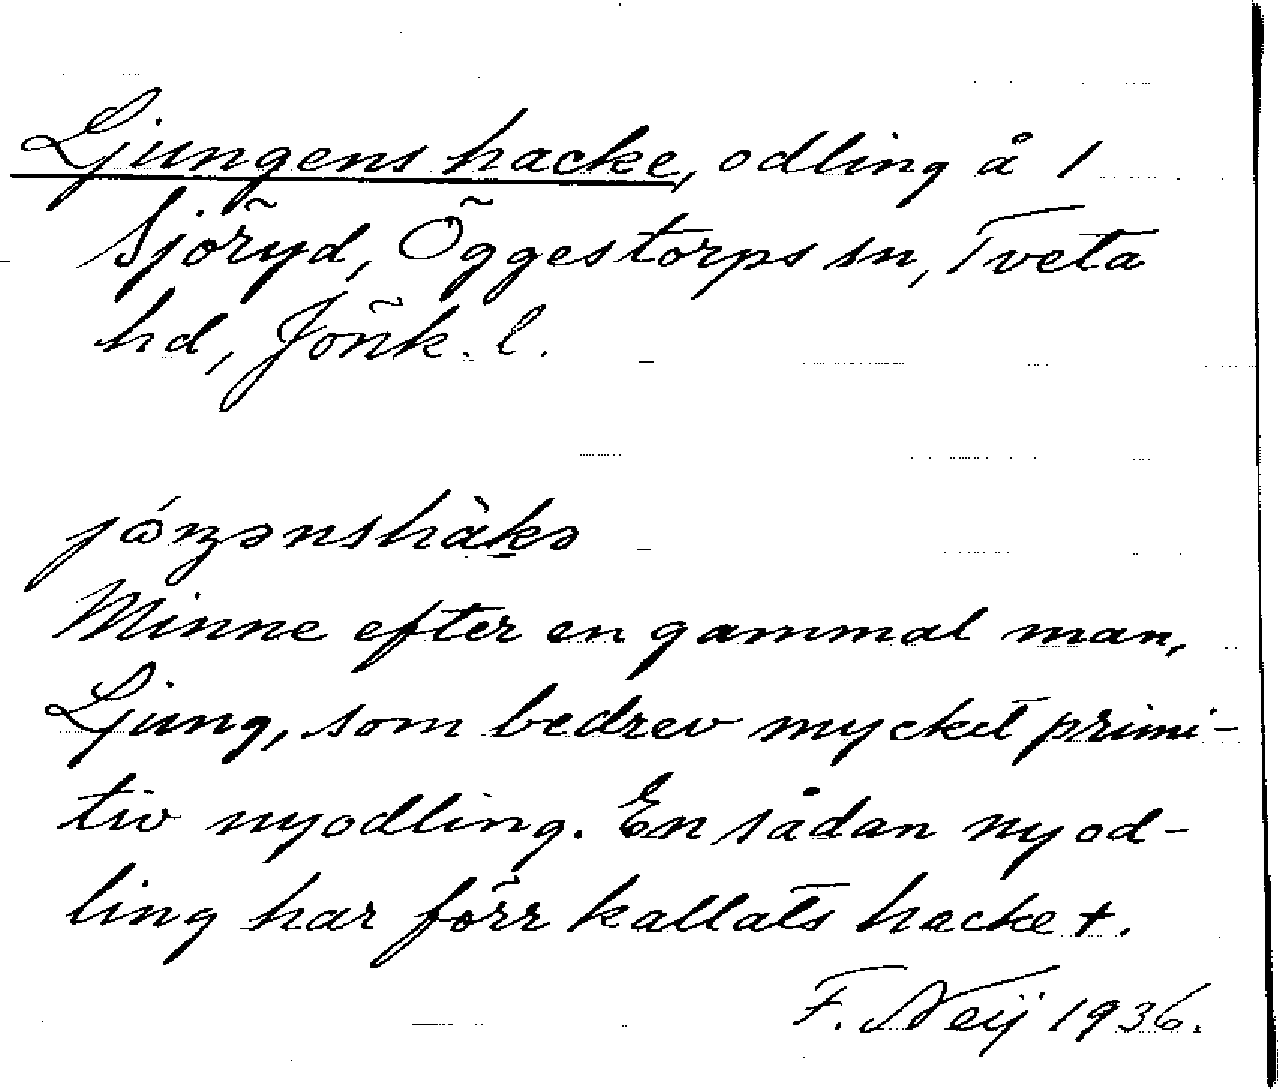 Ljungens hacke, odling å 1
Sjöryd, Öggestorps sn, Tveta
hd, Jönk. l.
Minne efter en gammal man,
Ljung, som bedrev mycket primi-
tiv nyodling. En sådan nyod-
ling har förr kallats hacke +.
F. Neij 1936.